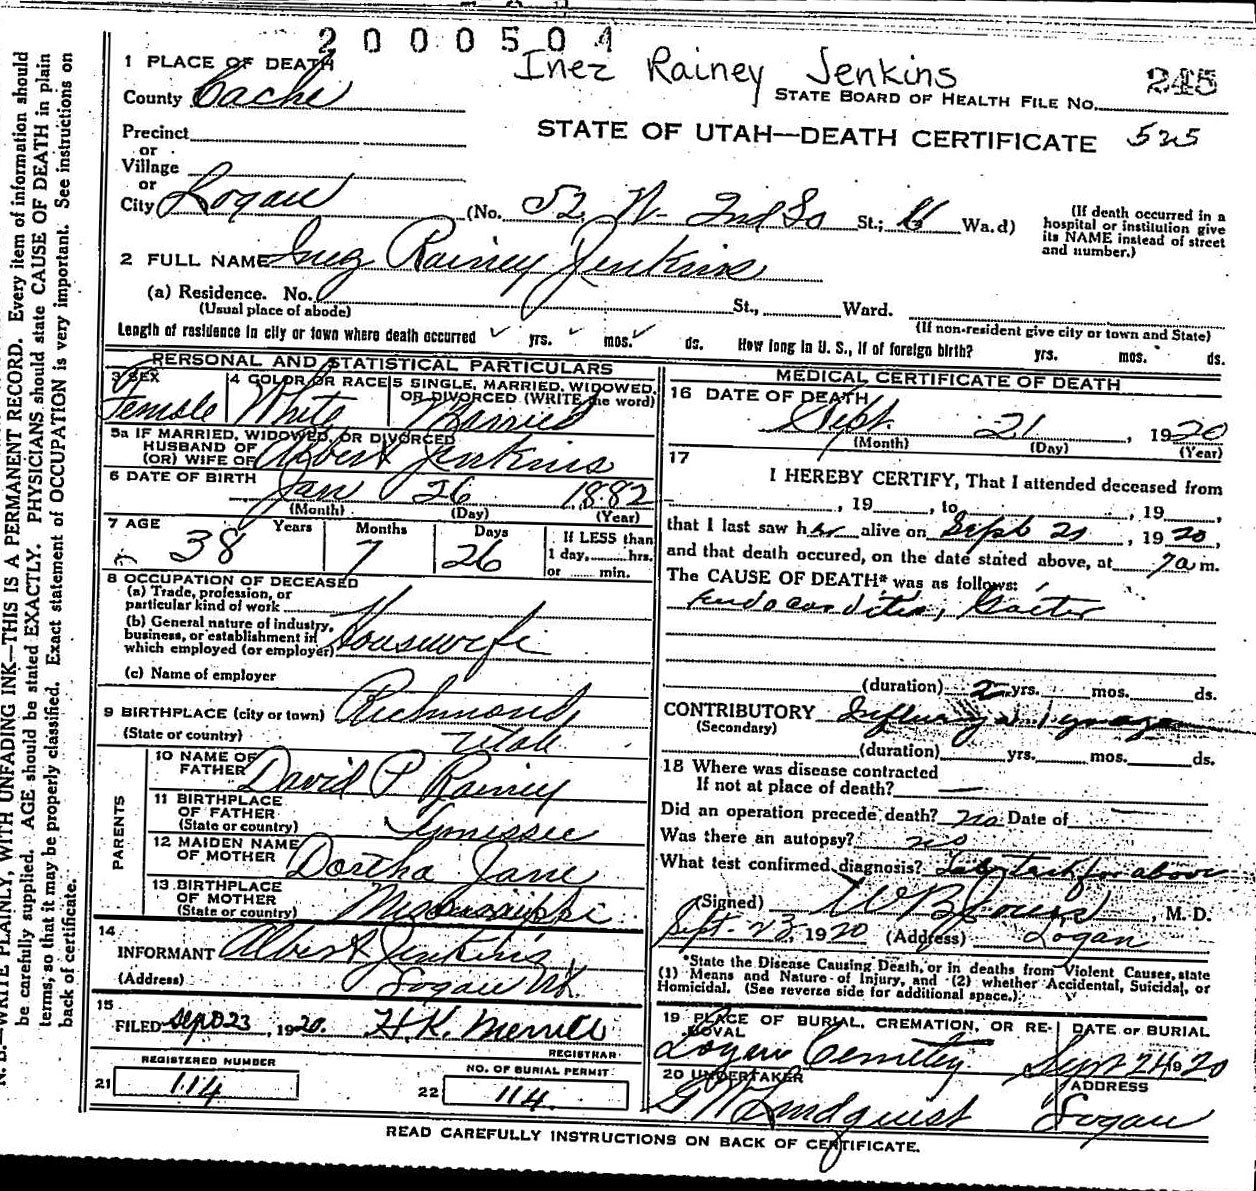 2000504
Inez Rainey Jenkins 245
1 PLACE OF DEATH
STATE BOARD OF HEALTH FILE NO.
County Cache
STATE OF UTAH—DEATH CERTIFICATE 525
Precinct
or
Village
or
City Logan (No. 52 W- 2nd So St.; Ward)
(If death occurred in a hospital or institution give its NAME instead of street and number.)
2 FULL NAME Inez Rainey Jenkins
(a) Residence. No. St., Ward.
(Usual place of abode) (If non-resident give city or town and State)
Length of residence in city or town where death occurred yrs. mos. ds. How long in U. S., if of foreign birth? yrs. mos. ds.
PERSONAL AND STATISTICAL PARTICULARS
3 SEX Female
4 COLOR OR RACE White
5 SINGLE, MARRIED, WIDOWED, OR DIVORCED (WRITE the word) Married
5a IF MARRIED, WIDOWED, OR DIVORCED
HUSBAND OF
(OR) WIFE OF Albert Jenkins
6 DATE OF BIRTH Jan 26 1882
(Month) (Day) (Year)
7 AGE Years Months Days If LESS than
38 7 26 1 day, hrs.
or min.
8 OCCUPATION OF DECEASED
(a) Trade, profession, or
particular kind of work
(b) General nature of industry,
business, or establishment in
which employed (or employer) Housewife
(c) Name of employer
9 BIRTHPLACE (city or town) Richmond
(State or country) Utah
PARENTS
10 NAME OF FATHER David P Rainey
11 BIRTHPLACE OF FATHER
(State or country) Tennissee
12 MAIDEN NAME OF MOTHER Dortha Jane
13 BIRTHPLACE OF MOTHER
(State or country) Mississippi
14
INFORMANT Albert Jenkins
(Address) Logan Ut.
15
FILED Sept 23, 1920. H.K. Merrill
REGISTRAR
REGISTERED NUMBER
21 114
NO. OF BURIAL PERMIT
22 114.
MEDICAL CERTIFICATE OF DEATH
16 DATE OF DEATH
Sept. 21, 1920
(Month) (Day) (Year)
17
I HEREBY CERTIFY, That I attended deceased from
, 19 , to , 19 ,
that I last saw her alive on Sept 21, 1920,
and that death occured, on the date stated above, at 7 a m.
The CAUSE OF DEATH* was as follows:
Endocarditis, Goiter
(duration) 2 yrs. mos. ds.
CONTRIBUTORY
(Secondary)
(duration) yrs. mos. ds.
18 Where was disease contracted
If not at place of death? —
Did an operation precede death? no Date of —
Was there an autopsy? no
What test confirmed diagnosis? for above
(Signed) W B , M. D.
Sept. 23, 1920 (Address) Logan
*State the Disease Causing Death, or in deaths from Violent Causes, state
(1) Means and Nature of Injury, and (2) whether Accidental, Suicidal, or
Homicidal. (See reverse side for additional space.)
19 PLACE OF BURIAL, CREMATION, OR REMOVAL DATE OF BURIAL
Logan Cemetery. Sept 24 1920
20 UNDERTAKER ADDRESS
G W Lindquist Logan
READ CAREFULLY INSTRUCTIONS ON BACK OF CERTIFICATE.
WRITE PLAINLY, WITH UNFADING INK—THIS IS A PERMANENT RECORD. Every item of information should
be carefully supplied. AGE should be stated EXACTLY. PHYSICIANS should state CAUSE OF DEATH in plain
terms, so that it may be properly classified. Exact statement of OCCUPATION is very important. See instructions on
back of certificate.